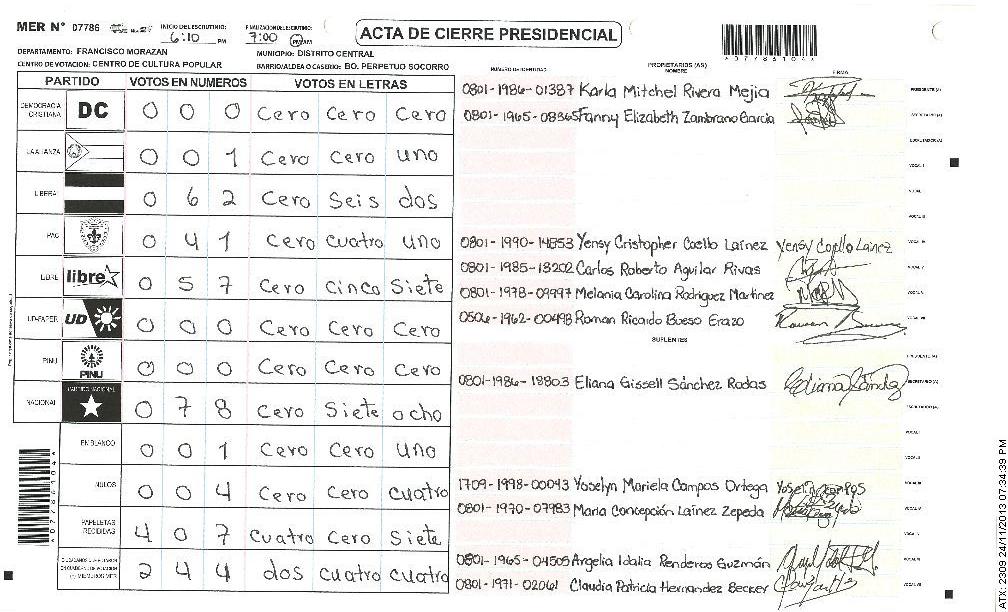 MER N° 07786 INICIO DE ESCRUTINIO: 6:10 PM FINALIZACION DE ESCRUTINIO: 7:00 PM/AM
ACTA DE CIERRE PRESIDENCIAL
DEPARTAMENTO: FRANCISCO MORAZAN MUNICIPIO: DISTRITO CENTRAL
CENTRO DE VOTACION: CENTRO DE CULTURA POPULAR BARRIO/ALDEA O CASERIO: BO. PERPETUO SOCORRO
PARTIDO VOTOS EN NUMEROS VOTOS EN LETRAS
DEMOCRACIA CRISTIANA DC 0 0 0 Cero Cero Cero
LA ALIANZA 0 0 1 Cero Cero uno
LIBERAL 0 6 2 Cero Seis dos
PAC 0 4 1 Cero Cuatro uno
LIBRE libre 0 5 7 Cero Cinco Siete
UD-FAPER UD 0 0 0 Cero Cero Cero
PINU PINU 0 0 0 Cero Cero Cero
NACIONAL PARTIDO NACIONAL 0 7 8 Cero Siete ocho
EN BLANCO 0 0 1 Cero Cero Uno
NULOS 0 0 4 Cero Cero Cuatro
PAPELETAS RECIBIDAS 4 0 7 Cuatro Cero Siete
2 4 4 dos Cuatro Cuatro
NUMERO DE IDENTIDAD PROPIETARIOS (AS) NOMBRE FIRMA
0801-1986-01387 Karla Mitchel Rivera Mejia PRESIDENTE (A)
0801-1965-08365 Fanny Elizabeth Zambrano Garcia SECRETARIO (A)
ESCRUTADOR (A)
VOCAL I
VOCAL II
VOCAL III
0801-1990-14853 Yensy Cristopher Coello Laínez Yensy Coello Laínez VOCAL IV
0801-1985-13202 Carlos Roberto Aguilar Rivas VOCAL V
0801-1978-09997 Melania Carolina Rodriguez Martinez VOCAL VI
0506-1962-00498 Roman Ricardo Bueso Erazo VOCAL VII
SUPLENTES
PRESIDENTE (A)
0801-1986-18803 Eliana Gissell Sánchez Rodas SECRETARIO (A)
ESCRUTADOR (A)
VOCAL I
VOCAL II
1709-1998-00043 Yoselyn Mariela Campos Ortega VOCAL III
0801-1970-07983 Maria Concepción Laínez Zepeda VOCAL IV
VOCAL V
0801-1965-04505 Argelia Idalia Renderos Guzmán VOCAL VI
0801-1971-02061 Claudia Patricia Hernandez Becker VOCAL VII
*07786104*
*07786104*
ATX-2309 24/11/2013 07:34:39 PM